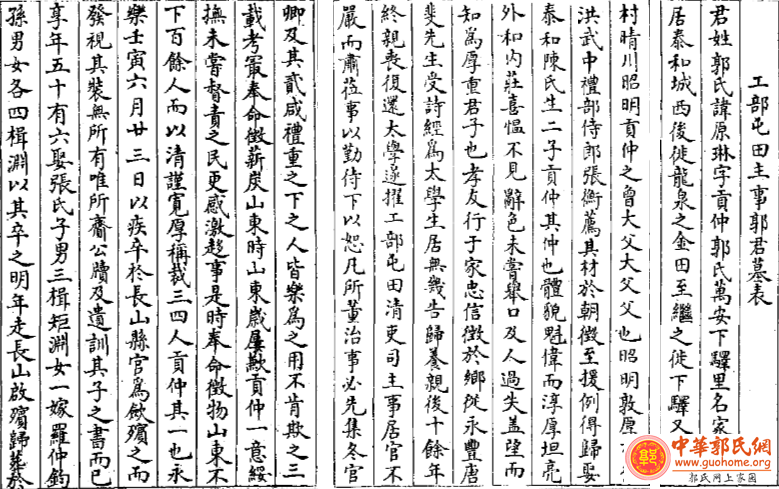 工部屯田主事郭君墓表
君姓郭氏諱原琳字貢仲郭氏萬安下驛里名家
居泰和城西後徙龍泉之金田至繼之徙下驛又
村晴川昭明貢仲之曾大父大父父也昭明敦厚
洪武中禮部侍郎張衡薦其材於朝徵至援例得歸娶
泰和陳氏生二子貢仲其仲也體貌魁偉而淳厚坦亮
外和内莊喜慍不見辭色未嘗舉口及人過失盖望而
知為厚重君子也孝友行于家忠信徵於鄉從永豐唐
斐先生受詩經為太學生居無幾告歸養親後十餘年
終親喪復還太學遂擢工部屯田清吏司主事居官不
嚴而肅莅事以勤待下以恕凡所董治事必先集冬官
卿及其貳咸禮重之下之人皆樂為之用不肯欺之三
載考冣奉命徵薪炭山東時山東嵗屢歉貢仲一意綏
撫未嘗督責之民更感激趍事是時奉命徵物山東不
下百餘人而以清謹寛厚稱裁三四人貢仲其一也永
樂壬寅六月廿三日以疾卒於長山縣官為斂殯之而
發視其裝無所有唯所齎公牘及遺訓其子之書而已
享年五十有六娶張氏子男三楫矩淵女一嫁羅仲鈞
孫男女各四楫淵以其卒之明年走長山啟殯歸葬於
中華郭氏網
www.guohome.org
郭氏网上家园